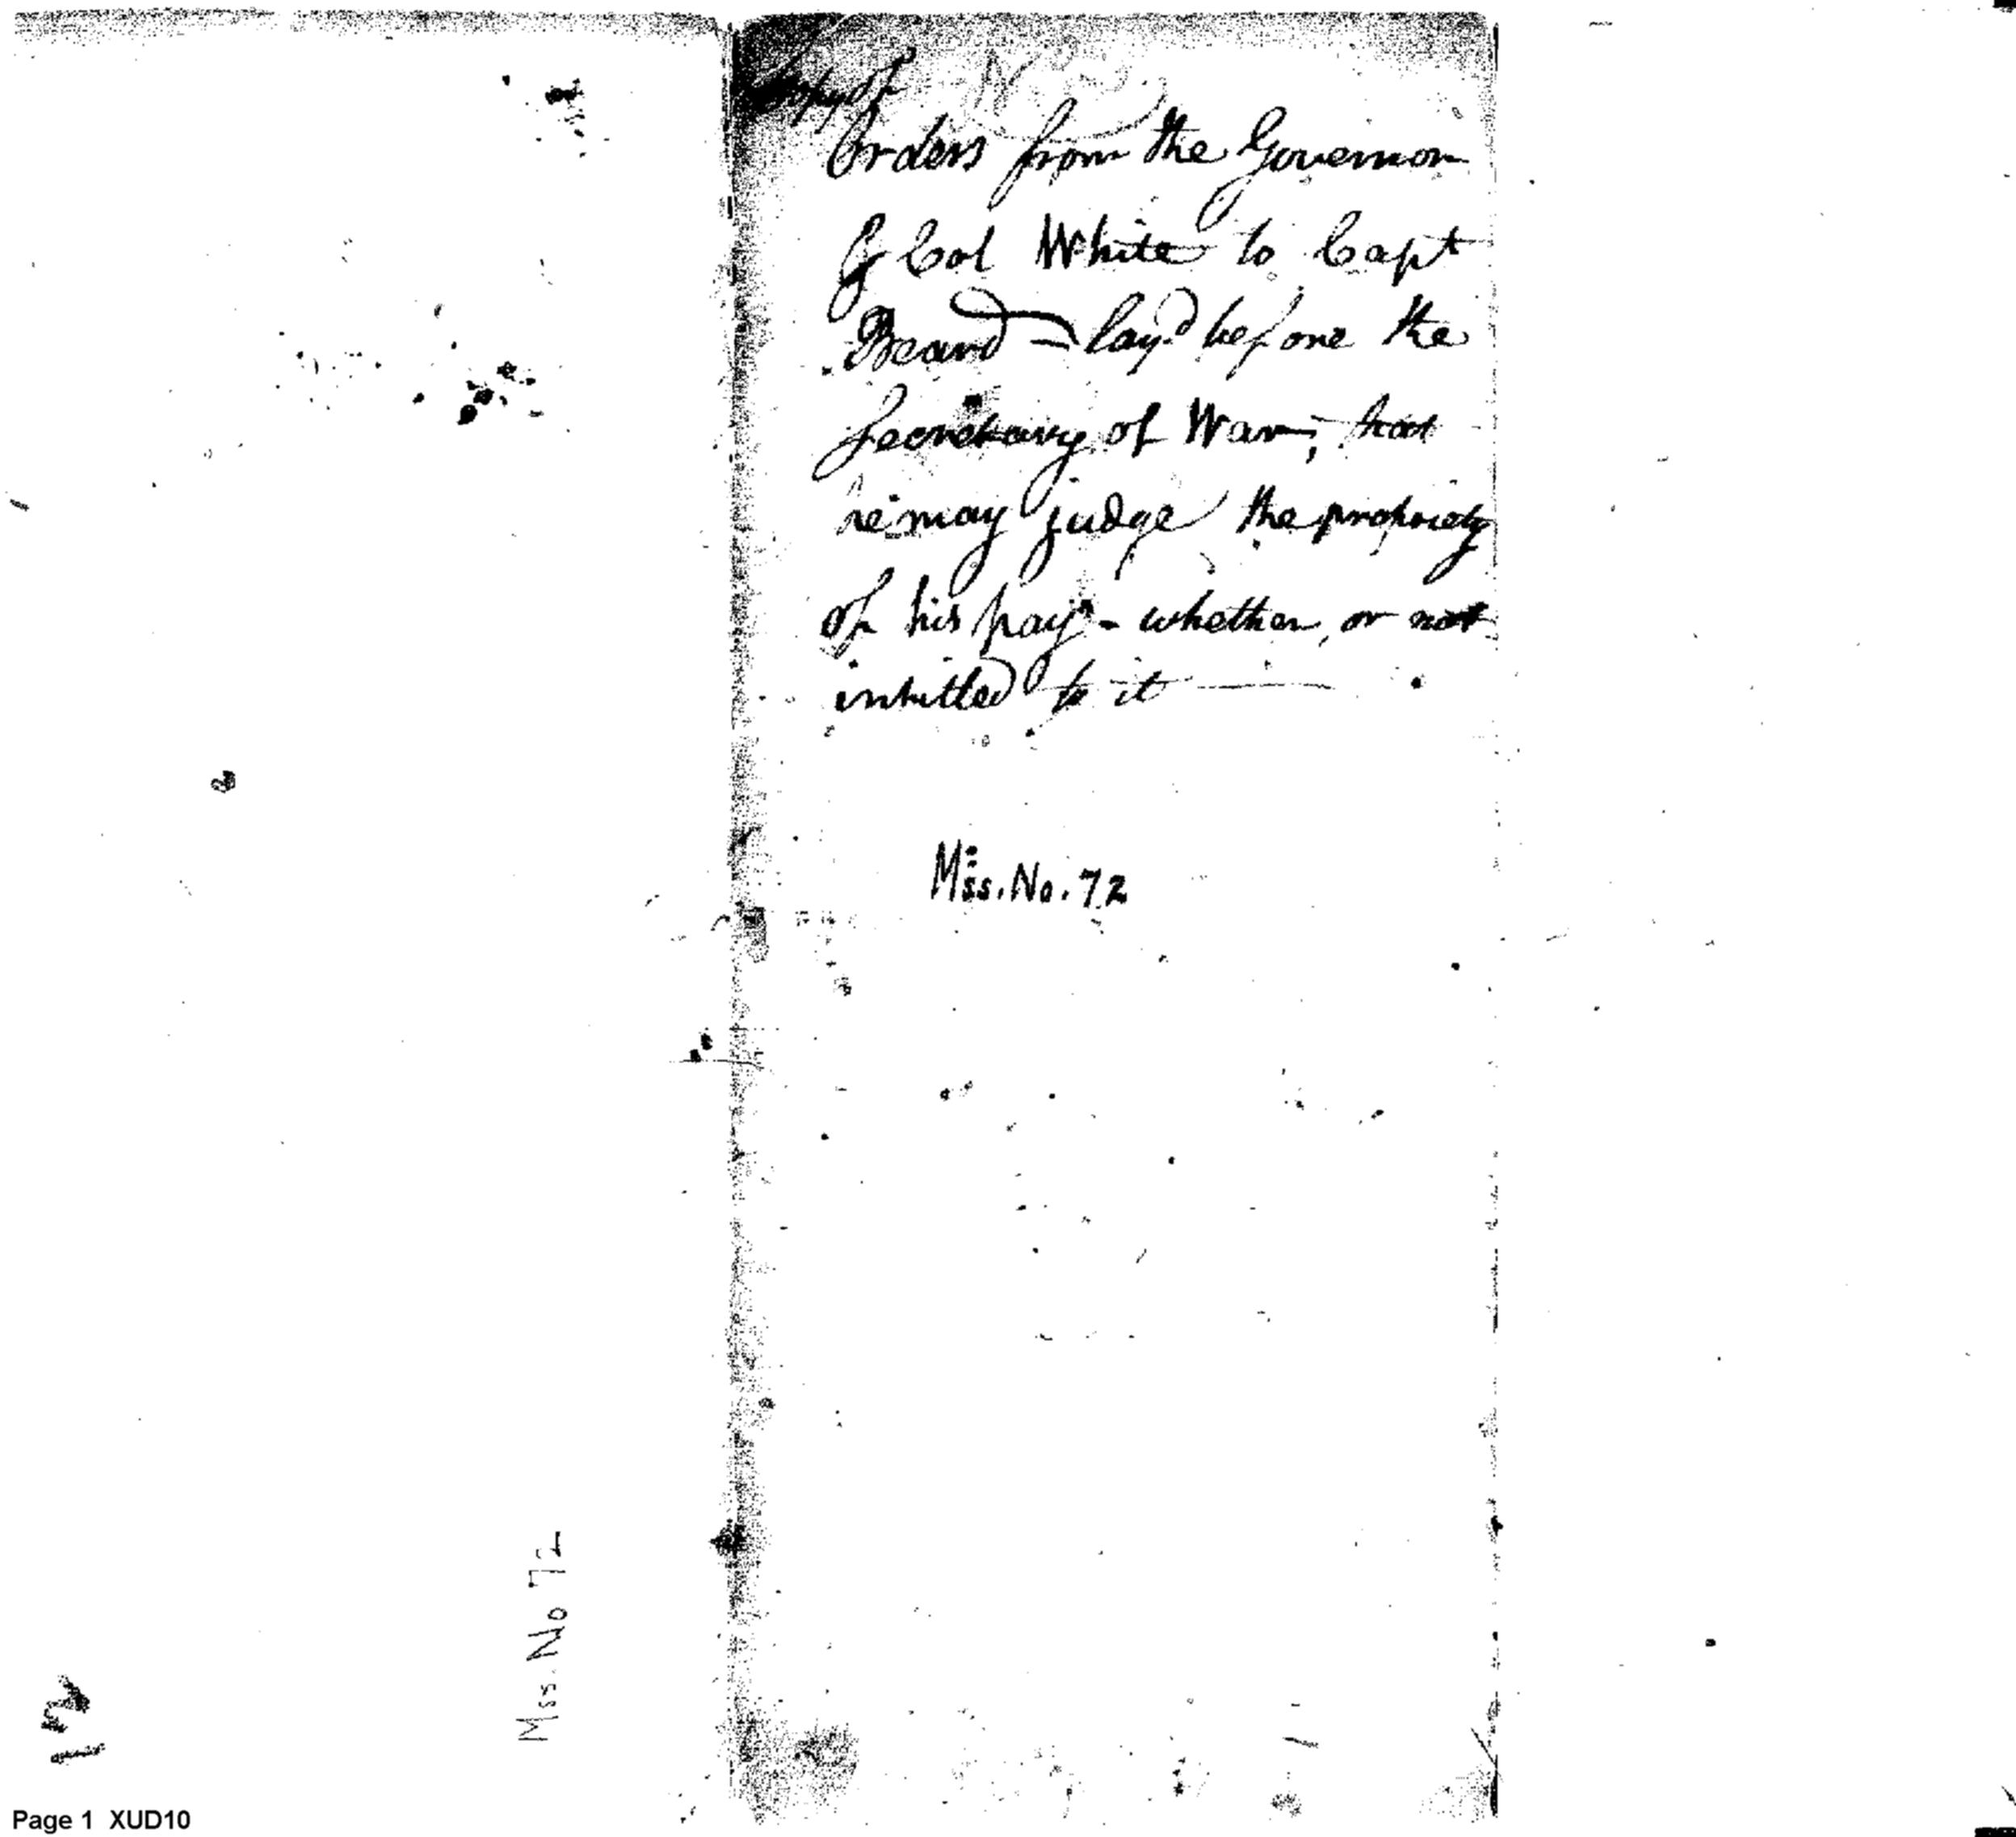 Copy of
Orders from the Governor
& Col White to Capt
Beard – lay'd before the
Secretary of War, that
he may judge the propriety
of his pay - whether or not
intitled to it
Mss. No. 72
Mss. No 72
Page 1 XUD10